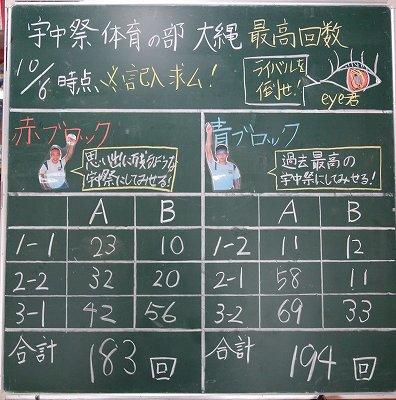 宇中祭 体育の部 大縄 最高回数
10/6 時点、必記入求ム!
ライバルを
倒せ!
eye君
赤ブロック
思い出に残るような
宇中祭にしてみせる!
青ブロック
過去最高の
宇中祭にしてみせる!
A B
1-1 23 10
2-2 32 20
3-1 42 56
合計 183 回
A B
1-2 11 12
2-1 58 11
3-2 69 33
合計 194 回